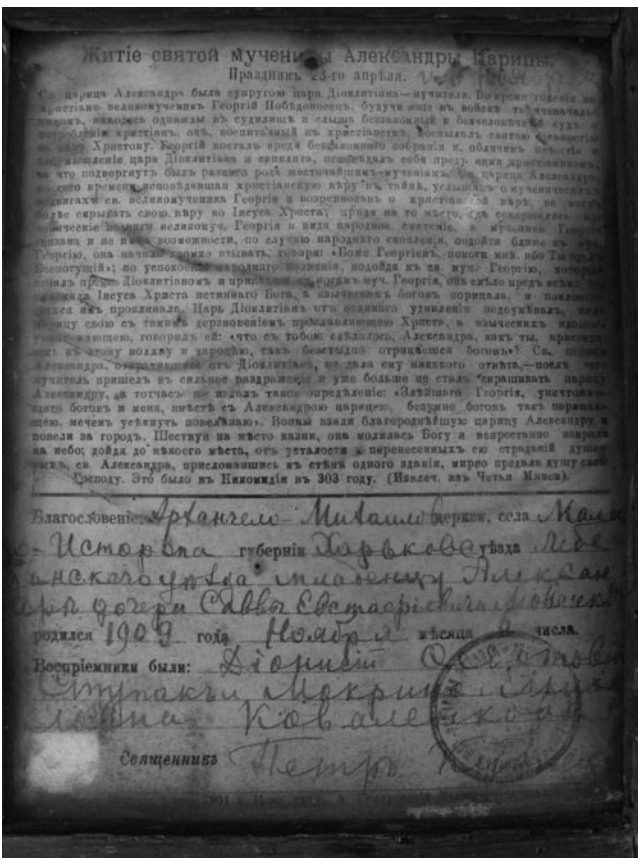 Житіе святой мученицы Александры Царицы.
Праздникъ 23-го апрѣля.
Св. царица Александра была супругою царя Діоклитіана—мучителя. Во время гоненія на
христіанъ великомученикъ Георгій Побѣдоносецъ, будучи еще въ войскѣ тысяченачаль-
никомъ, находясь однажды въ судилищѣ и слыша беззаконный и безчеловѣчный судъ о
христіанъ, онъ, воспитанный въ христіанствѣ, воспылалъ святою ревностью
вѣру Христову. Георгій возсталъ среди беззаконнаго собранія и, обличивъ нечестіе и
царя Діоклитіана и синклита, исповѣдалъ себя предъ ними христіаниномъ,
за что подвергнутъ былъ разнаго рода жесточайшимъ мученіямъ. Св. царица Александра,
времени исповѣдавшая христіанскую вѣру въ тайнѣ, услышавъ о мученическихъ
подвигахъ св. великомученика Георгія и возревновавъ о христіанской вѣрѣ, не могла
болѣе скрывать свою вѣру во Іисуса Христа; придя на то мѣсто, гдѣ совершались му-
ченическіе подвиги великомуч. Георгія и видя народное смятеніе, а мученика Георгія
и не имѣя возможности, по случаю народнаго смятенія, подойти ближе къ муч.
Георгію, она начала громко взывать, говоря: «Боже Георгіевъ, помоги мнѣ, ибо Ты одинъ
Всемогущій»; по успокоеніи народнаго волненія, подойдя къ св. муч. Георгію, который
стоялъ предъ Діоклитіаномъ и припавши къ ногамъ муч. Георгія, она смѣло предъ всѣми
Іисуса Христа истиннаго Бога, а языческихъ боговъ порицала, и
ихъ проклинала. Царь Діоклитіанъ отъ великаго удивленія недоумѣвалъ, видя
царицу свою съ такимъ дерзновеніемъ прославляющею Христа, а языческихъ идоловъ
говорилъ ей: «что съ тобою сдѣлалось, Александра, какъ ты,
къ этому волхву и чародѣю, такъ безстыдно отрицаешься боговъ»? Св. царица
Александра, отвратившись отъ Діоклитіана, не дала ему никакого отвѣта,—послѣ чего
мучитель пришелъ въ сильнее раздраженіе и уже больше не сталъ спрашивать царицу
Александру, а тотчасъ же издалъ такое опредѣленіе: «Злѣйшаго Георгія, уничтожа-
ющаго боговъ и меня, вмѣстѣ съ Александрою царицею, безумно боговъ такъ порицаю-
щею, мечемъ усѣкнуть повелѣваю». Воины взяли благороднѣйшую царицу Александру и
повели за городъ. Шествуя на мѣсто казни, она молилась Богу и непрестанно взирала
на небо; дойдя до нѣкоего мѣста, отъ усталости и перенесенныхъ ею страданій
св. Александра, прислонившись къ стѣнѣ одного зданія, мирно предала душу свою
Господу. Это было въ Никомидіи въ 303 году. (Извлеч. изъ Четьи Минеи).
Благословеніе Архангело-Михаилов церкви, села Мало
Исторопа губерніи Харьковс уѣзда Лебе
динскаго уѣзда младенцу Алексан
дрѣ дочери Саввы Евстафіевича
родился 1909 года Ноября мѣсяца числа.
Воспріемники были: Діонисій
Ступакъ и Мокрина
Коваленкова
Священникъ Петръ